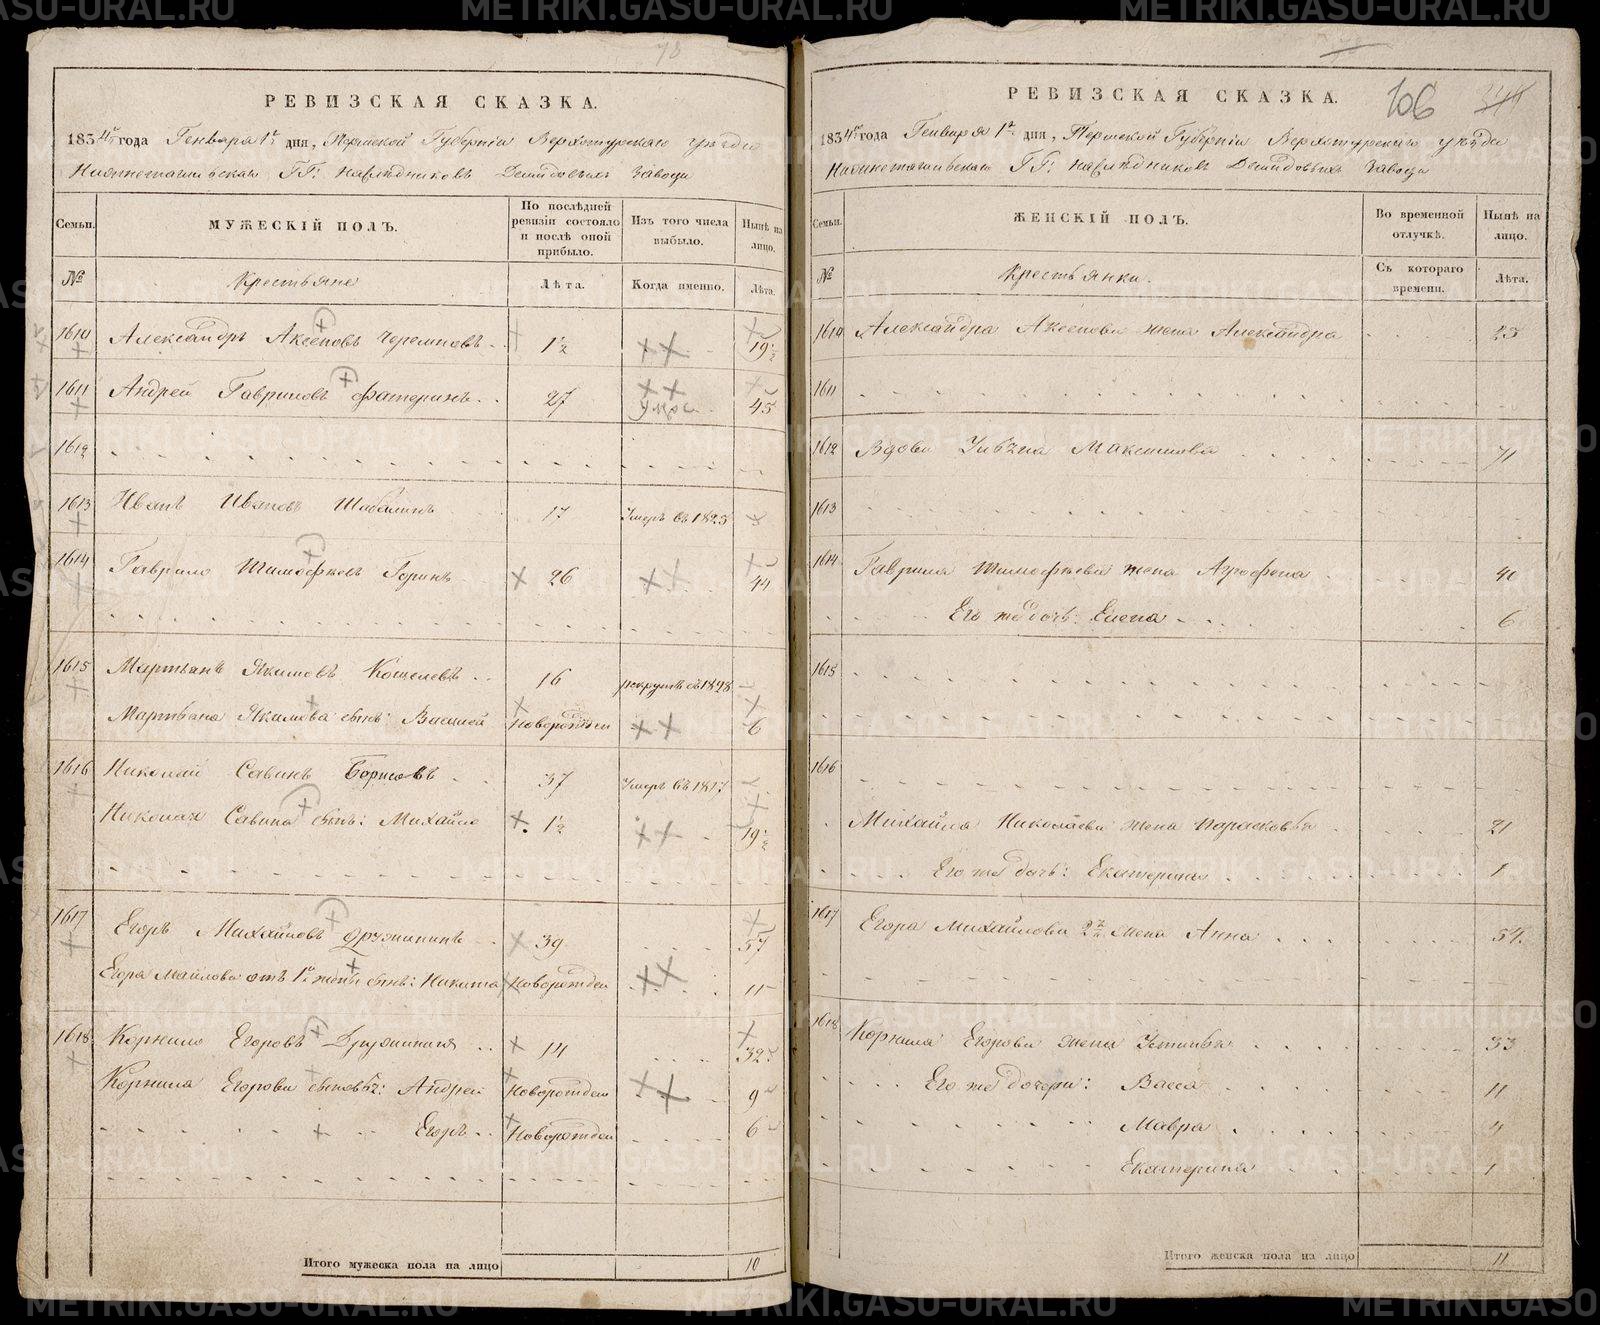 78
РЕВИЗСКАЯ СКАЗКА.
1834го года Генваря 1го дня, Пермской Губернiи Верхотурскаго уѣзда
Нижнетагильскаго ГГ: наслѣдниковъ Демидовыхъ Завода
Семьи.
МУЖЕСКІЙ ПОЛЪ.
По послѣдней ревизіи состояло и послѣ оной прибыло.
Изъ того числа выбыло.
Нынѣ на лицо.
№
Крестьяне
Лѣта.
Когда именно.
Лѣта.
1610 Александръ Аксеновъ 1½ 19½
1611 Андрей Гавриловъ 27 45
1612
1613 Иванъ Ивановъ Шабалинъ 17 Умеръ въ 1825
1614 Гаврило Тимофѣевъ Горинъ 26 44
1615 Мартьянъ Якимовъ Кошелевъ 16 рекрутъ въ 1828
Мартьяна Якимова сынъ: Василей Новорожден 6
1616 Николай Савинъ Борисовъ 37 Умеръ въ 1817
Николая Савина сынъ: Михайло 1½ 19½
1617 Егоръ Михайловъ Дружининъ 39 57
Егора Майлова отъ 1й жены сынъ: Никита Новорожден 11
1618 Корнило Егоровъ Дружинин 14 32
Корнила Егорова сыновья: Андрей Новорожден 9
Егоръ Новорожден 6
Итого мужеска пола на лицо 10
106
РЕВИЗСКАЯ СКАЗКА.
1834го года Генваря 1го дня, Пермской Губернiи Верхотурскаго уѣзда
Нижнетагильскаго ГГ: наслѣдниковъ Демидовыхъ Завода
Семьи.
ЖЕНСКІЙ ПОЛЪ.
Во временной отлучкѣ.
Нынѣ на лицо.
№
Крестьянки.
Съ котораго времени.
Лѣта.
1610 Александра Аксенова жена Александра 23
1611
1612 Вдова Максимова 71
1613
1614 Гаврила Тимофѣева жена Агрофена 40
Его же дочь: Елена 6
1615
1616
Михайла Николаева жена Парасковья 21
Его же дочь: Екатерина 1
1617 Егора Михайлова 2я жена Анна 54
1618 Корнила Егорова жена Устинья 33
Его же дочери: Васса 11
Мавра 4
Екатерина 1
Итого женска пола на лицо 11
METRIKI.GASO-URAL.RU